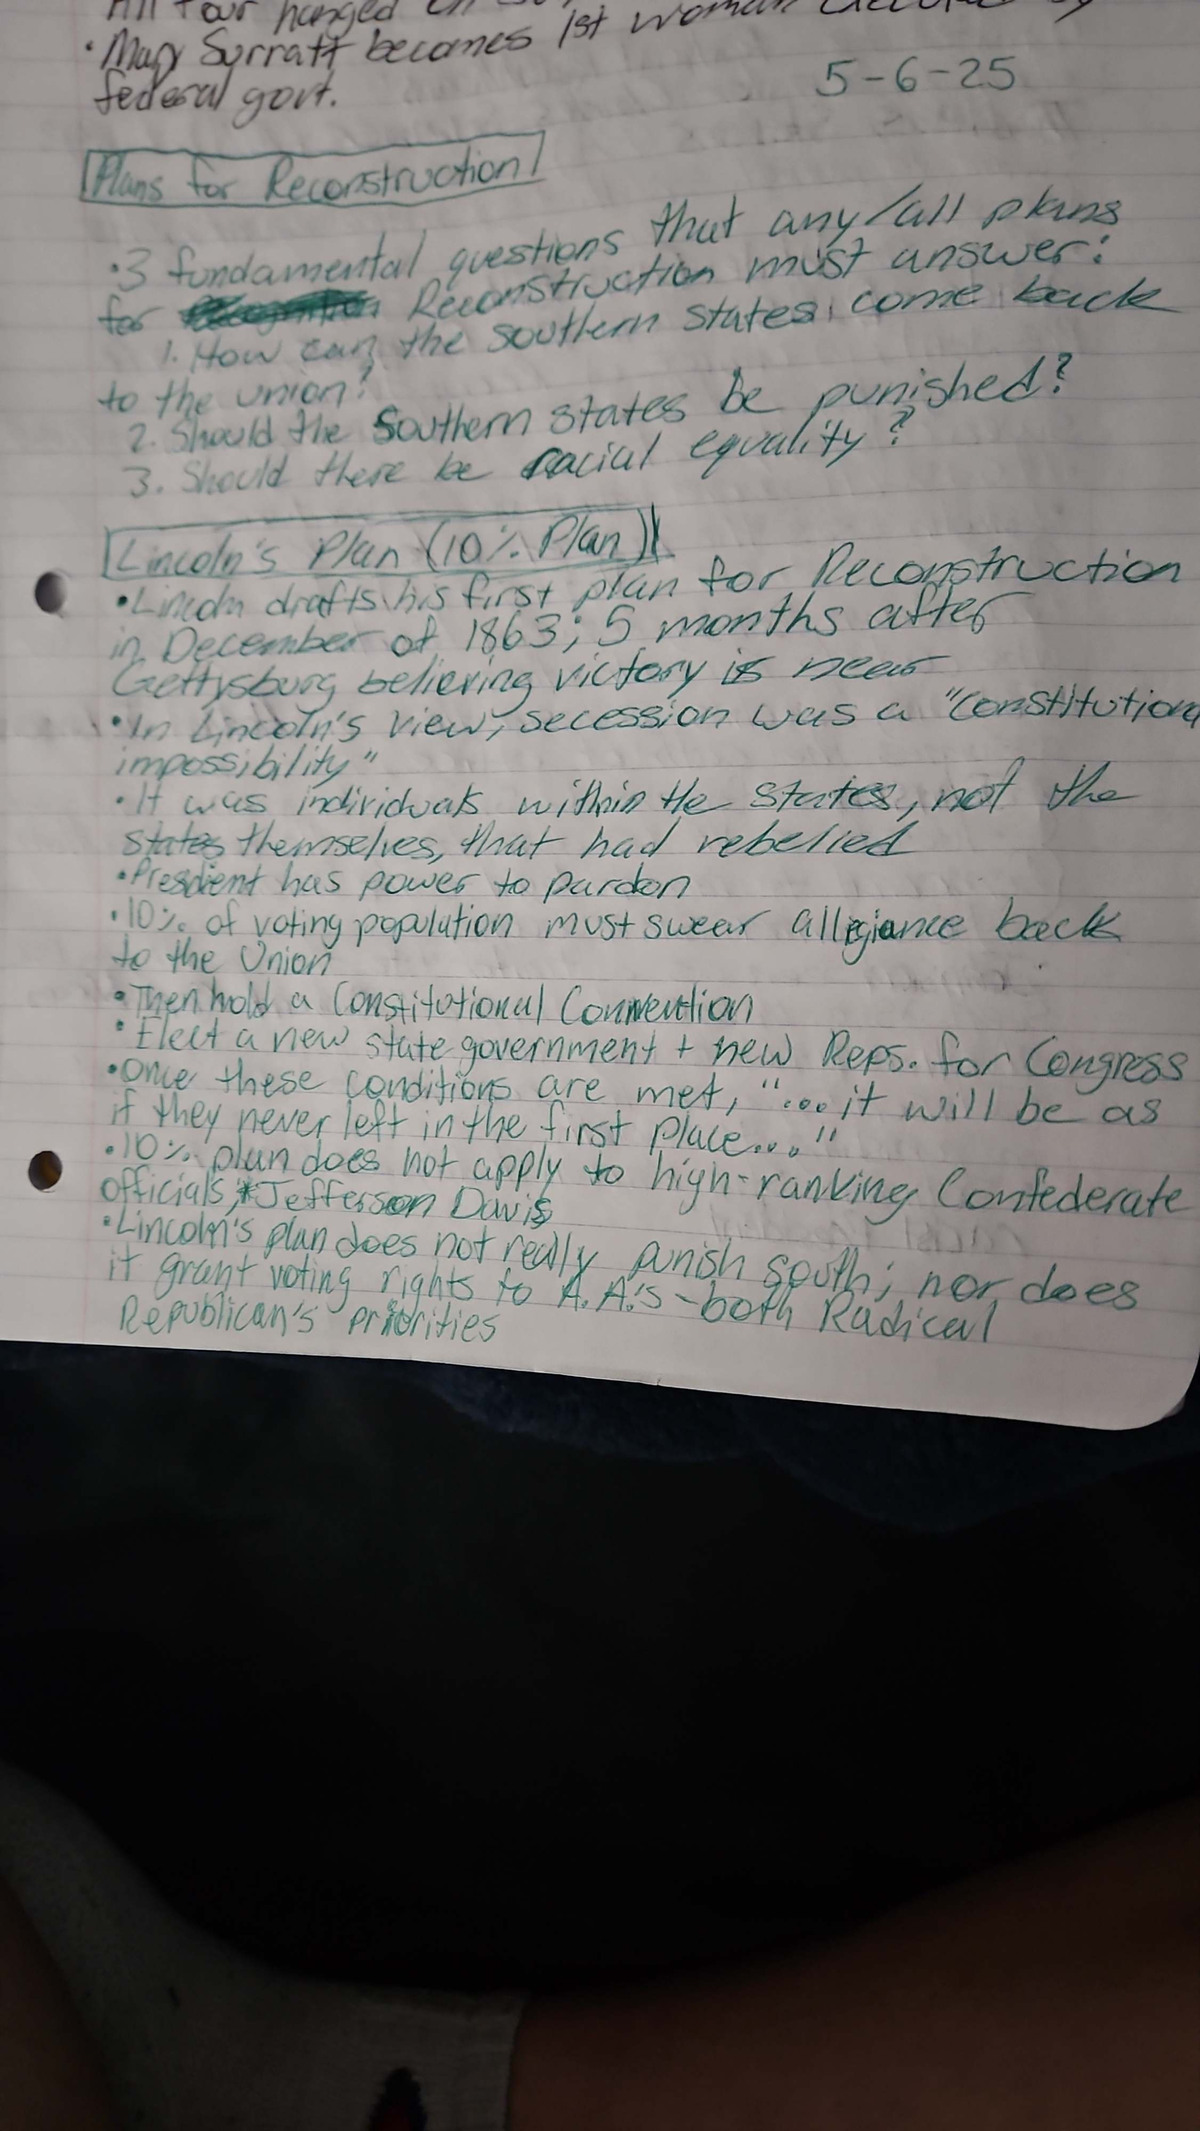 All four hanged on
• Mary Surratt becomes 1st woman executed by
federal govt.
5-6-25
Plans for Reconstruction
• 3 fundamental questions that any/all plans
for Reconstruction must answer:
1. How can the southern states come back
to the union?
2. Should the Southern states be punished?
3. Should there be racial equality?
Lincoln's Plan (10% Plan)
• Lincoln drafts his first plan for Reconstruction
in December of 1863; 5 months after
Gettysburg believing victory is near
• In Lincoln's view, secession was a "Constitutional
impossibility"
• It was individuals within the states, not the
states themselves, that had rebelled
• President has power to pardon
• 10% of voting population must swear allegiance back
to the Union
• Then hold a Constitutional Convention
• Elect a new state government + new Reps. for Congress
• Once these conditions are met, "...it will be as
if they never left in the first place..."
• 10% plan does not apply to high-ranking Confederate
officials, *Jefferson Davis
• Lincoln's plan does not really punish south; nor does
it grant voting rights to A.A.'s - both Radical
Republican's priorities